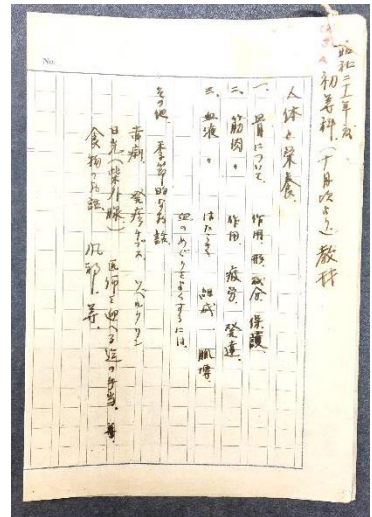 昭和二十年度
初等科(十月次より)教材
人体と栄養
一、骨について、作用、形、成分、保護、
二、筋肉〃 作用、疲労、発達、
三、血液〃 はたらき、組成、脈搏
血のめぐりをよくするには、
その他、季節的なお話
赤痢、発疹チブス、ツベルクリン
日光(紫外線) 医師を迎へる迄の手当、等
食物のお話、風邪、等、
No.